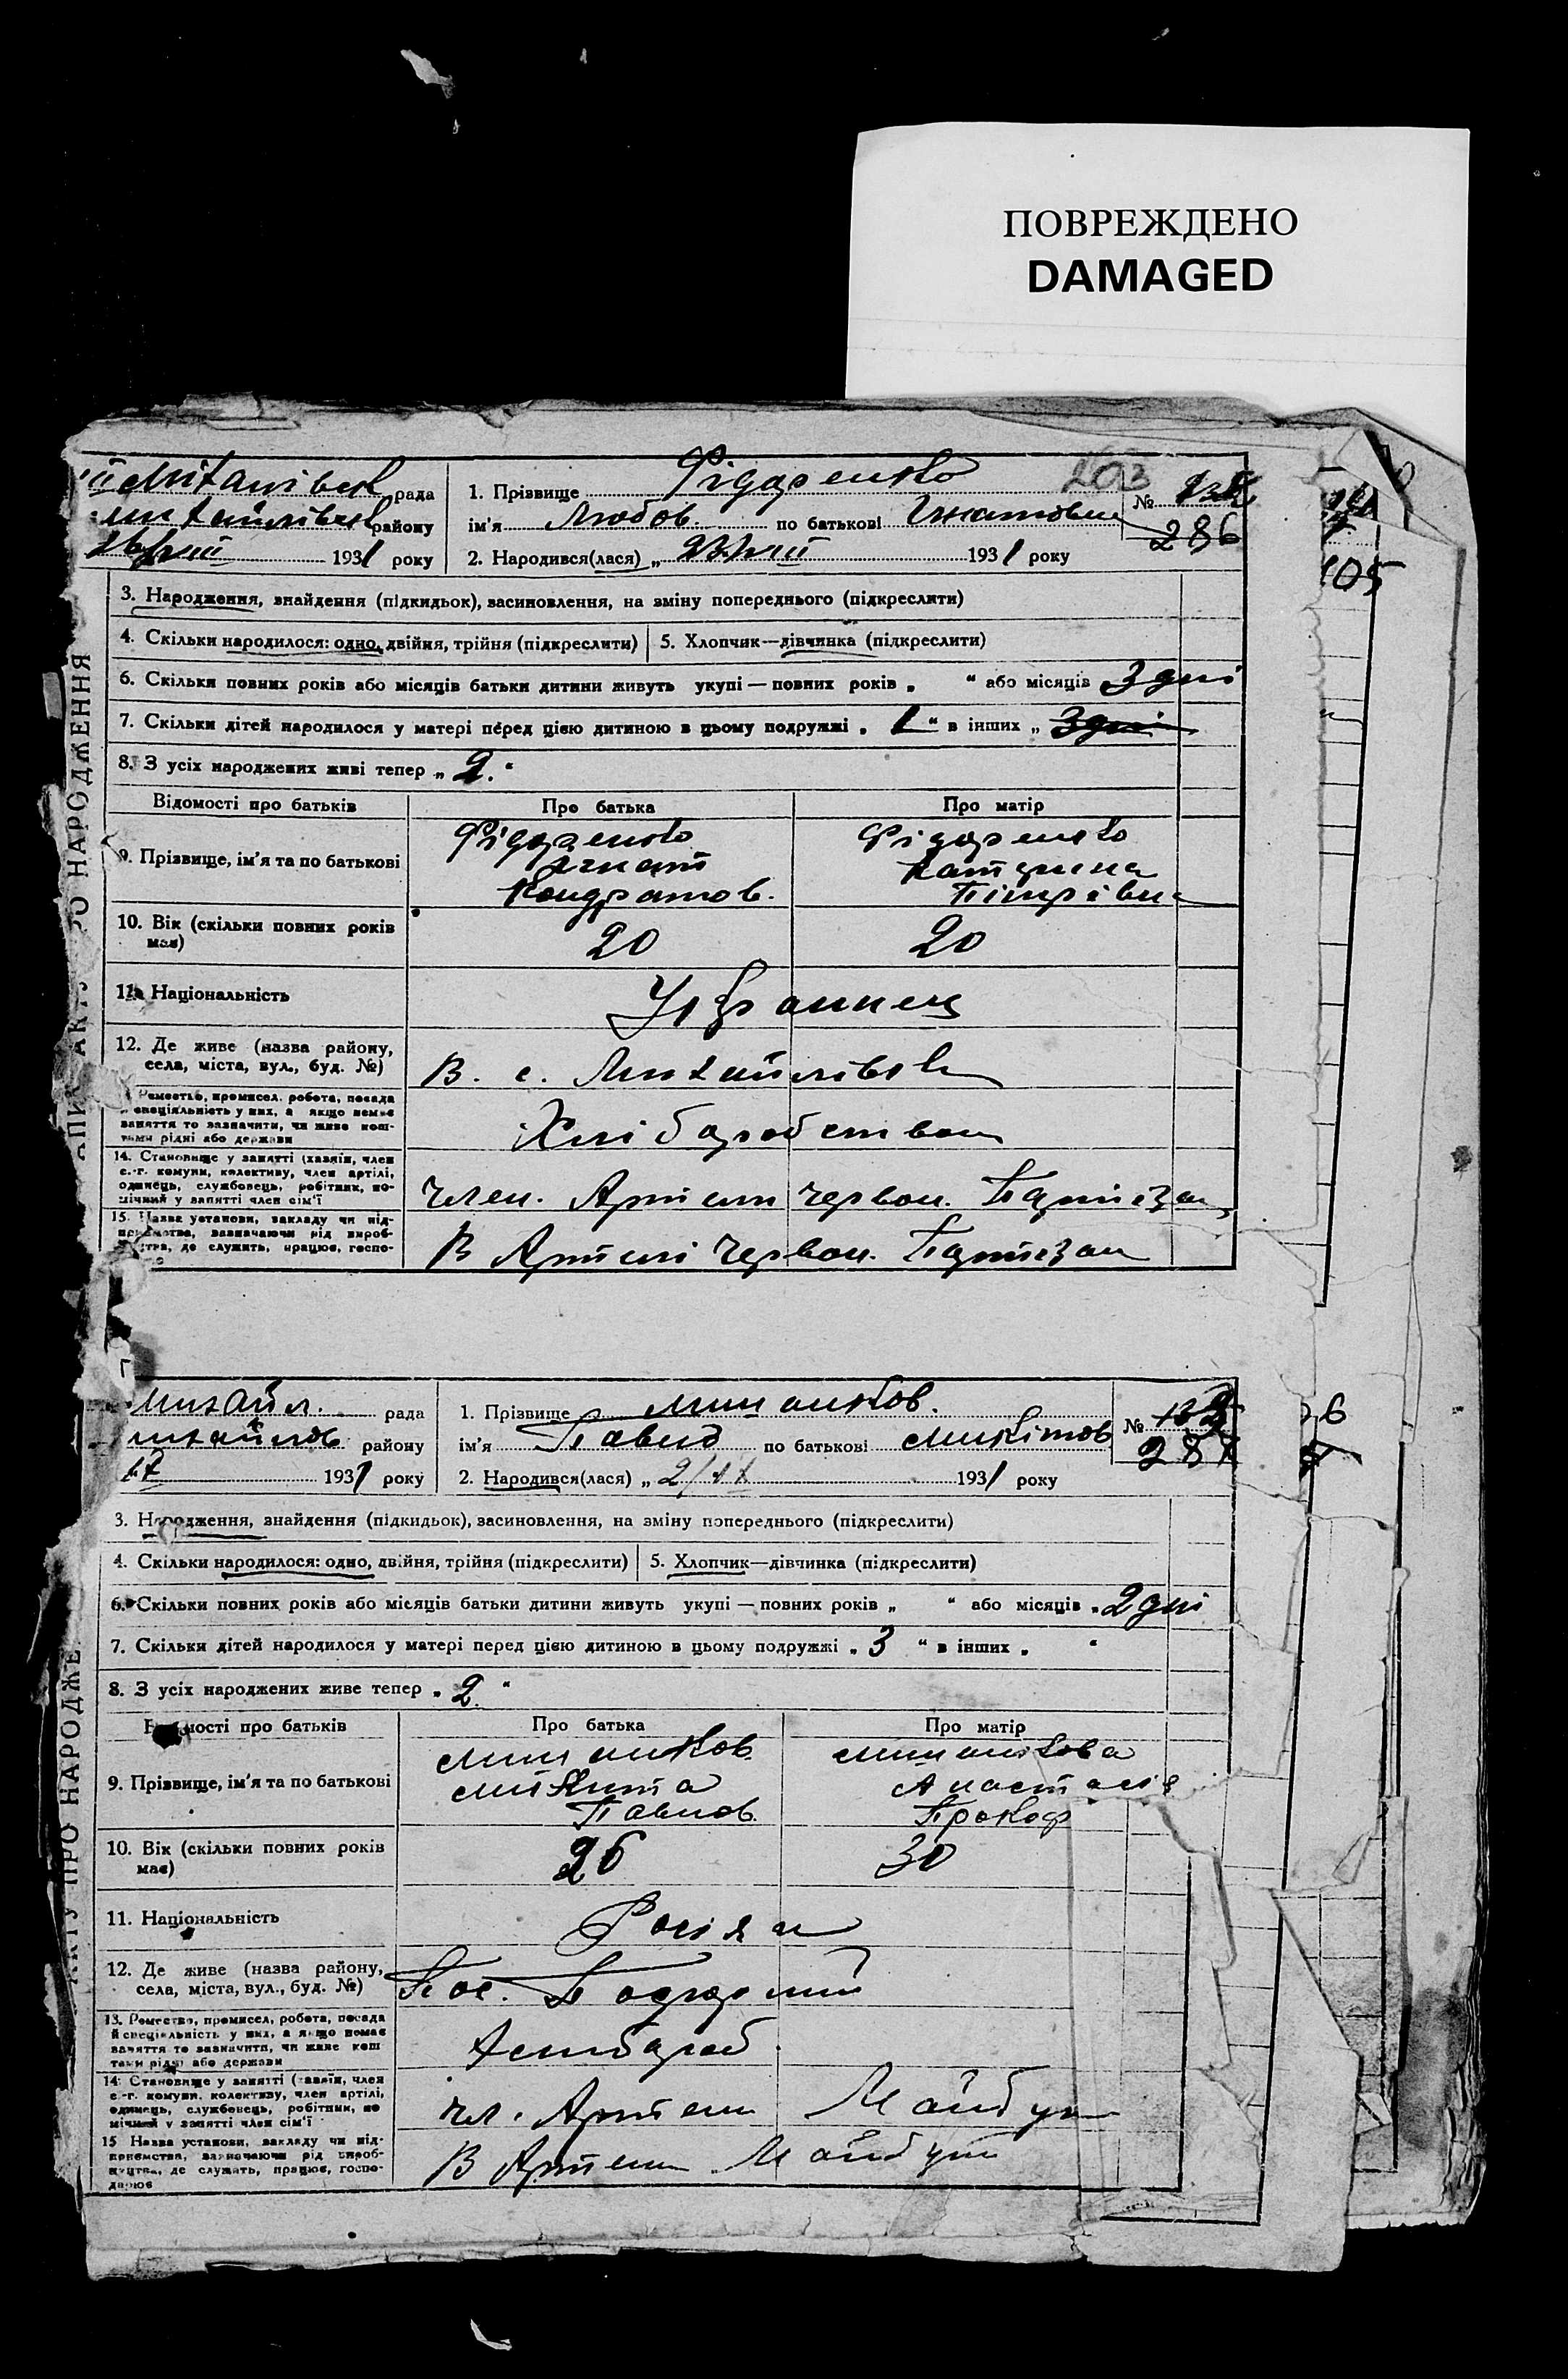 ПОВРЕЖДЕНО
DAMAGED
рада
району
1931 року
1. Прізвище Фідоренко
ім'я Любов. по батькові Ігнатовна
2. Народився(лася) „ 1931 року
203
№
286
105
3. Народження, знайдення (підкидьок), васиновлення, на зміну попереднього (підкреслити)
4. Скільки народилося: одно, двійня, трійня (підкреслити)
5. Хлопчик—дівчинка (підкреслити)
6. Скільки повних років або місяців батьки дитини живуть укупі — повних років „ “ або місяців 3 дні
7. Скільки дітей народилося у матері перед цією дитиною в цьому подружжі „ 1 “ в інших „ 3 дні
8. З усіх народжених живі тепер „ 2. “
Відомості про батьків
Про батька
Про матір
9. Прізвище, ім'я та по батькові
Фідоренко
Ігнат
Кондратов.
Фідоренко
Катерина
Пітрівна
10. Вік (скільки повних років
має)
20
20
11. Національність
Українец
12. Де живе (назва району,
села, міста, вул., буд. №)
В. с. Михайлівка
Ремество, промисел, робота, посада
й спеціяльність у них, а якщо немає
заняття то зазначити, чи живе кош-
тами рідні або держави
Хліборобством
14. Становище у занятті (хазяїн, член
с.-г. комуни, колективу, член артілі,
одинець, службовець, робітник, по-
мічний у занятті член сім'ї
член. Артели червон. Партізан
15. Назва установи, закладу чи під-
приємства, зазначаючи рід вироб-
ництва, де служить, працює, госпо-
В Артилі Червон. Партізан
ПРО НАРОДЖЕННЯ
Михайл. рада
Михайлов району
1931 року
1. Прізвище
ім'я Павло по батькові Микітов
2. Народився(лася) „ 2/IX 1931 року
№
287
3. Народження, знайдення (підкидьок), васиновлення, на зміну попереднього (підкреслити)
4. Скільки народилося: одно, двійня, трійня (підкреслити)
5. Хлопчик—дівчинка (підкреслити)
6. Скільки повних років або місяців батьки дитини живуть укупі — повних років „ “ або місяців „ 2 дні
7. Скільки дітей народилося у матері перед цією дитиною в цьому подружжі „ 3 “ в інших „ “
8. З усіх народжених живе тепер „ 2. “
Відомості про батьків
Про батька
Про матір
9. Прізвище, ім'я та по батькові
Микита
Павлов.
Анастасія
Прокоф
10. Вік (скільки повних років
має)
26
30
11. Національність
Росіян
12. Де живе (назва району,
села, міста, вул., буд. №)
Пос.
13. Ремество, промисел, робота, посада
й спеціяльність у них, а якщо немає
заняття то зазначити, чи живе кош
тами рідні або держави
Хлибороб
14. Становище у занятті (хазяїн, член
с.-г. комуни, колективу, член артілі,
одинець, службовець, робітник, по
мічний у занятті член сім'ї
чл. Артели
15 Назва установи, закладу чи під-
приємства, зазначаючи рід вироб-
ництва, де служить, працює, госпо-
дарює
В Артели
АКТУ ПРО НАРОДЖЕ